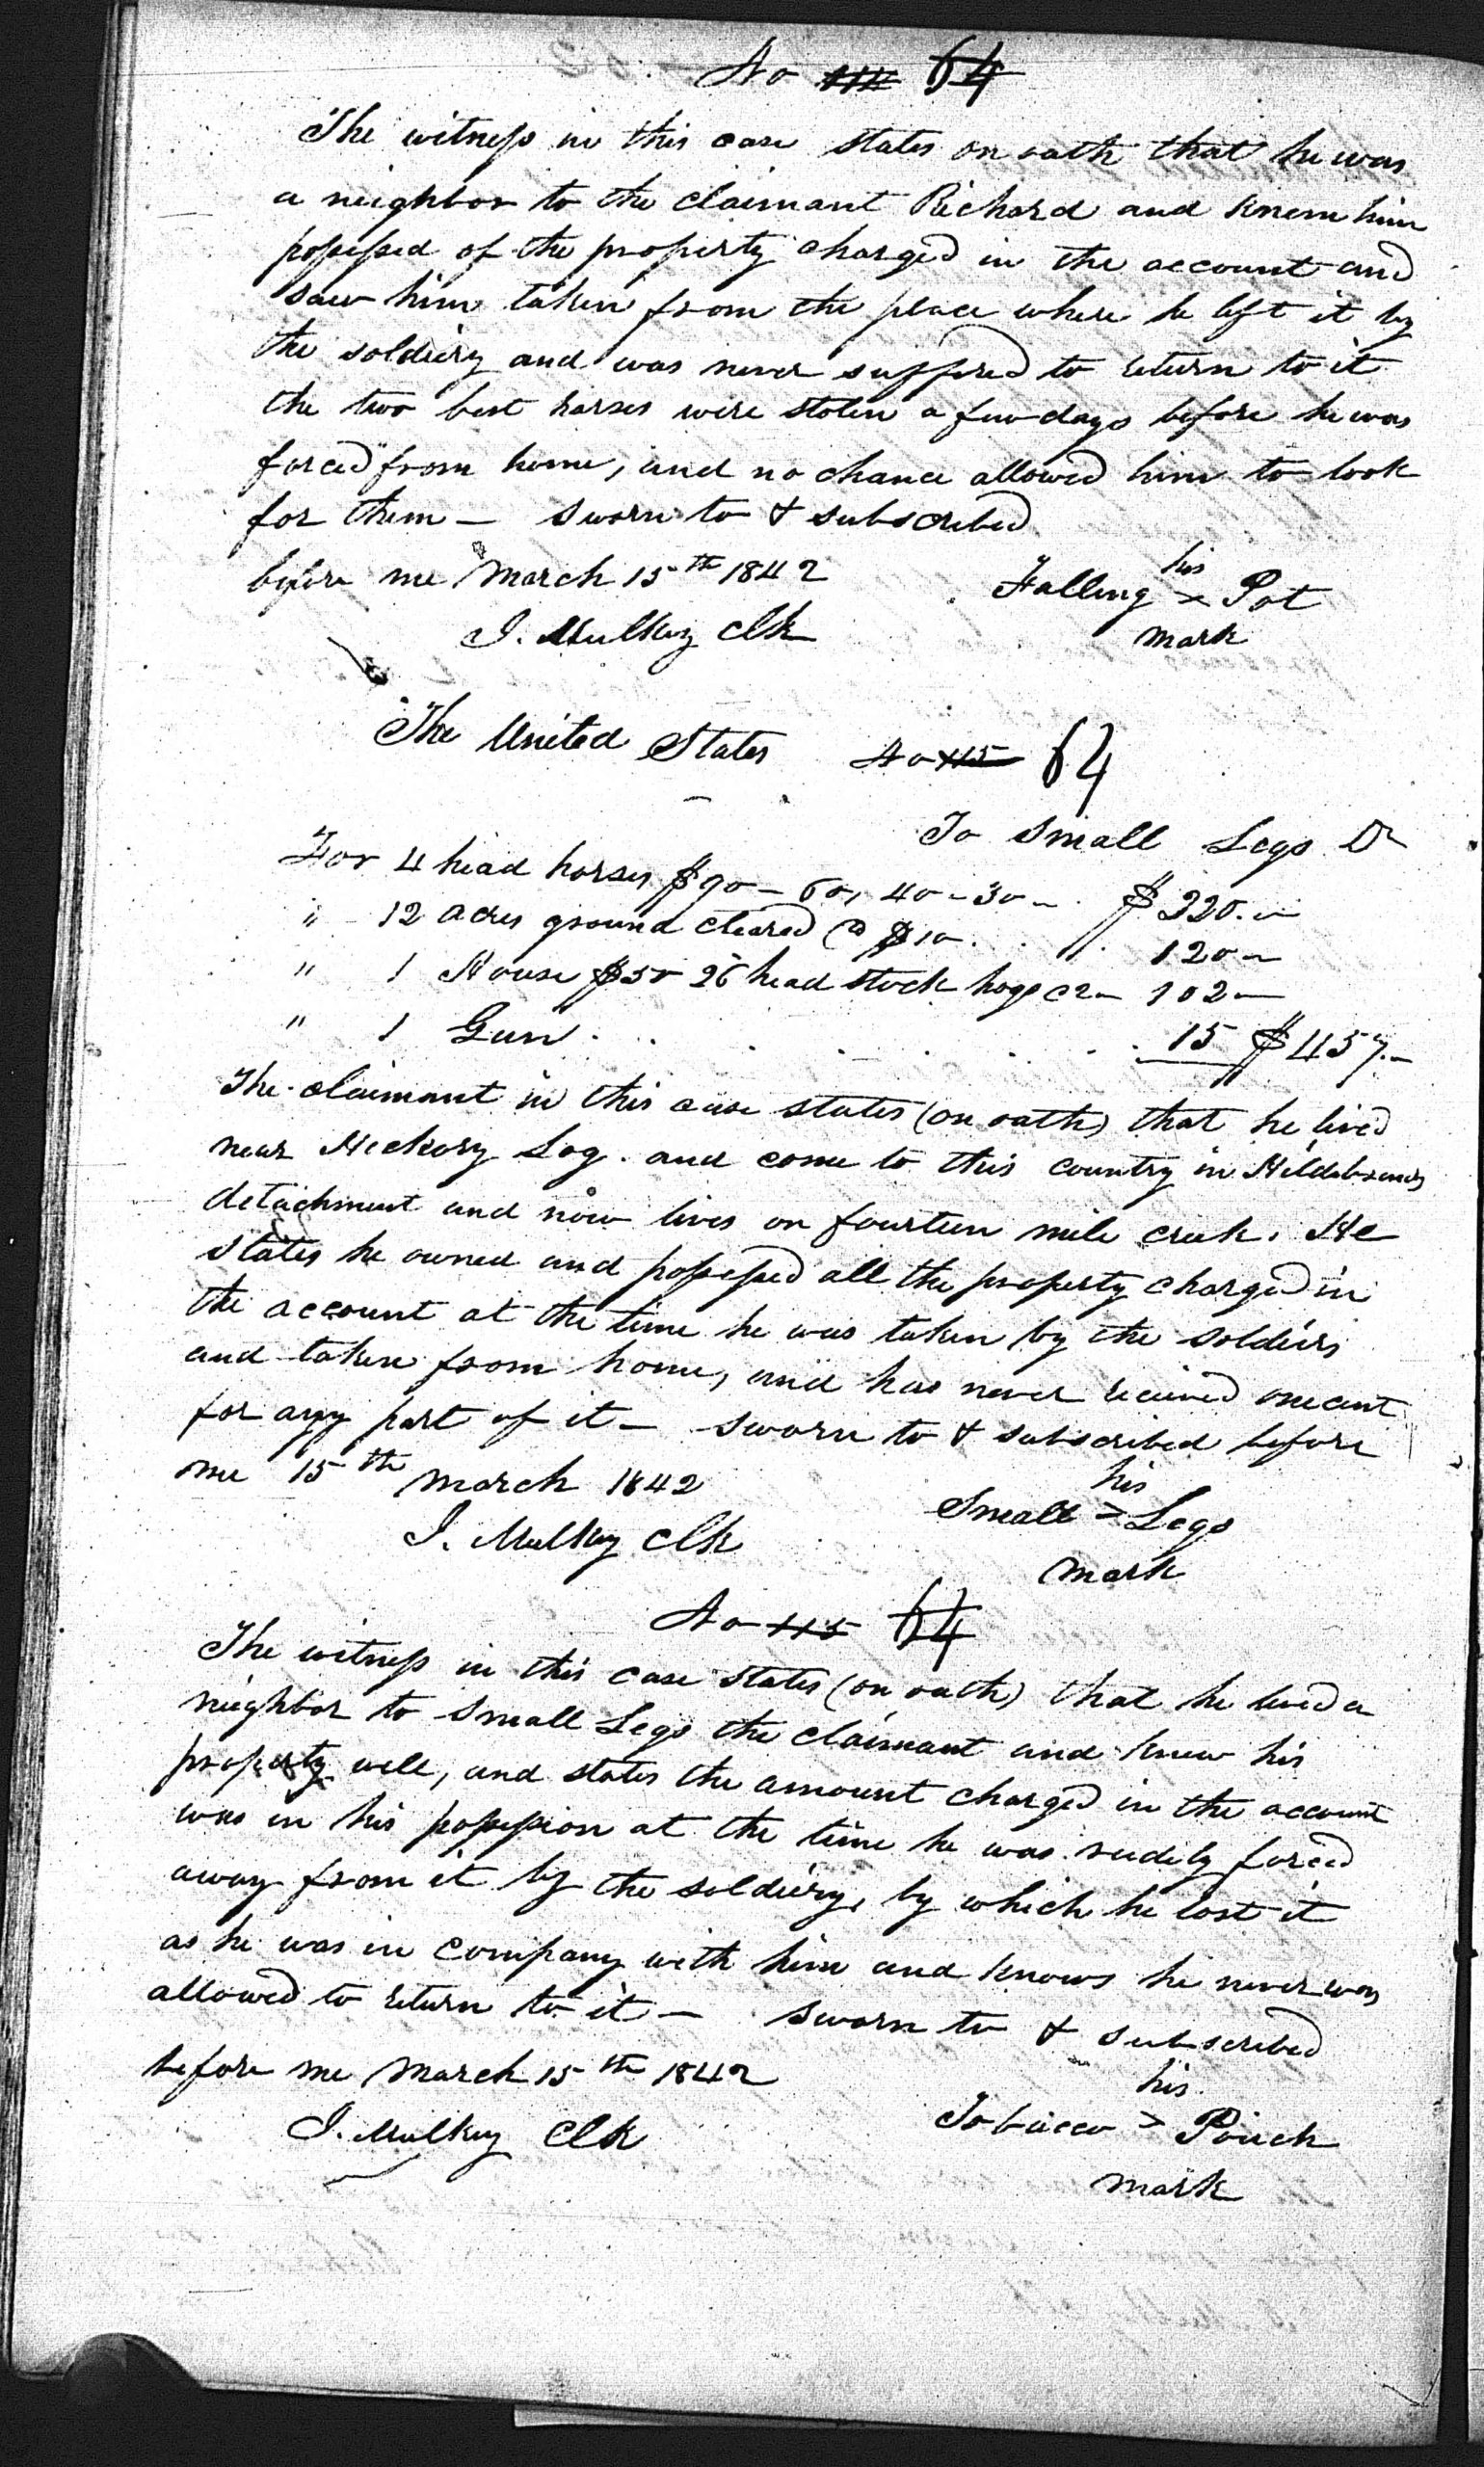 No 114 64
The witness in this case states on oath that he was
a neighbor to the claimant Richard and knew him
possessed of the property charged in the account and
saw him taken from the place where he left it by
the soldiery and was never suffered to return to it
the two best horses were stolen a few days before he was
forced from home, and no chance allowed him to look
for them — sworn to & subscribed
before me March 15th 1842
his
Falling x Pot
J. Mulkey Clk
mark
The United States No 115 64
To Small Legs Dr
For 4 head horses $90 - 60, 40 - 30 - $220.-
" 12 acres ground cleared @ $10 . . . 120 -
" 1 House $50 26 head stock hogs @2 - 102 -
" 1 Gun . . . . . . . 15 $457.-
The claimant in this case states (on oath) that he lived
near Hickory Log. and come to this country in Hildebrands
detachment and now lives on fourteen mile creek. He
states he owned and possessed all the property charged in
the account at the time he was taken by the soldiers
and taken from home, and has never received one cent
for any part of it — sworn to & subscribed before
me 15th March 1842
his
Small > Legs
J. Mulkey Clk
mark
No 115 64
The witness in this case states (on oath) that he lived a
neighbor to Small Legs the claimant and knew his
property well, and states the amount charged in the account
was in his possession at the time he was rudely forced
away from it by the soldiery, by which he lost it
as he was in company with him and knows he never was
allowed to return to it — sworn to & subscribed
before me March 15th 1842
his
Tobacco > Pouch
J. Mulkey Clk
mark